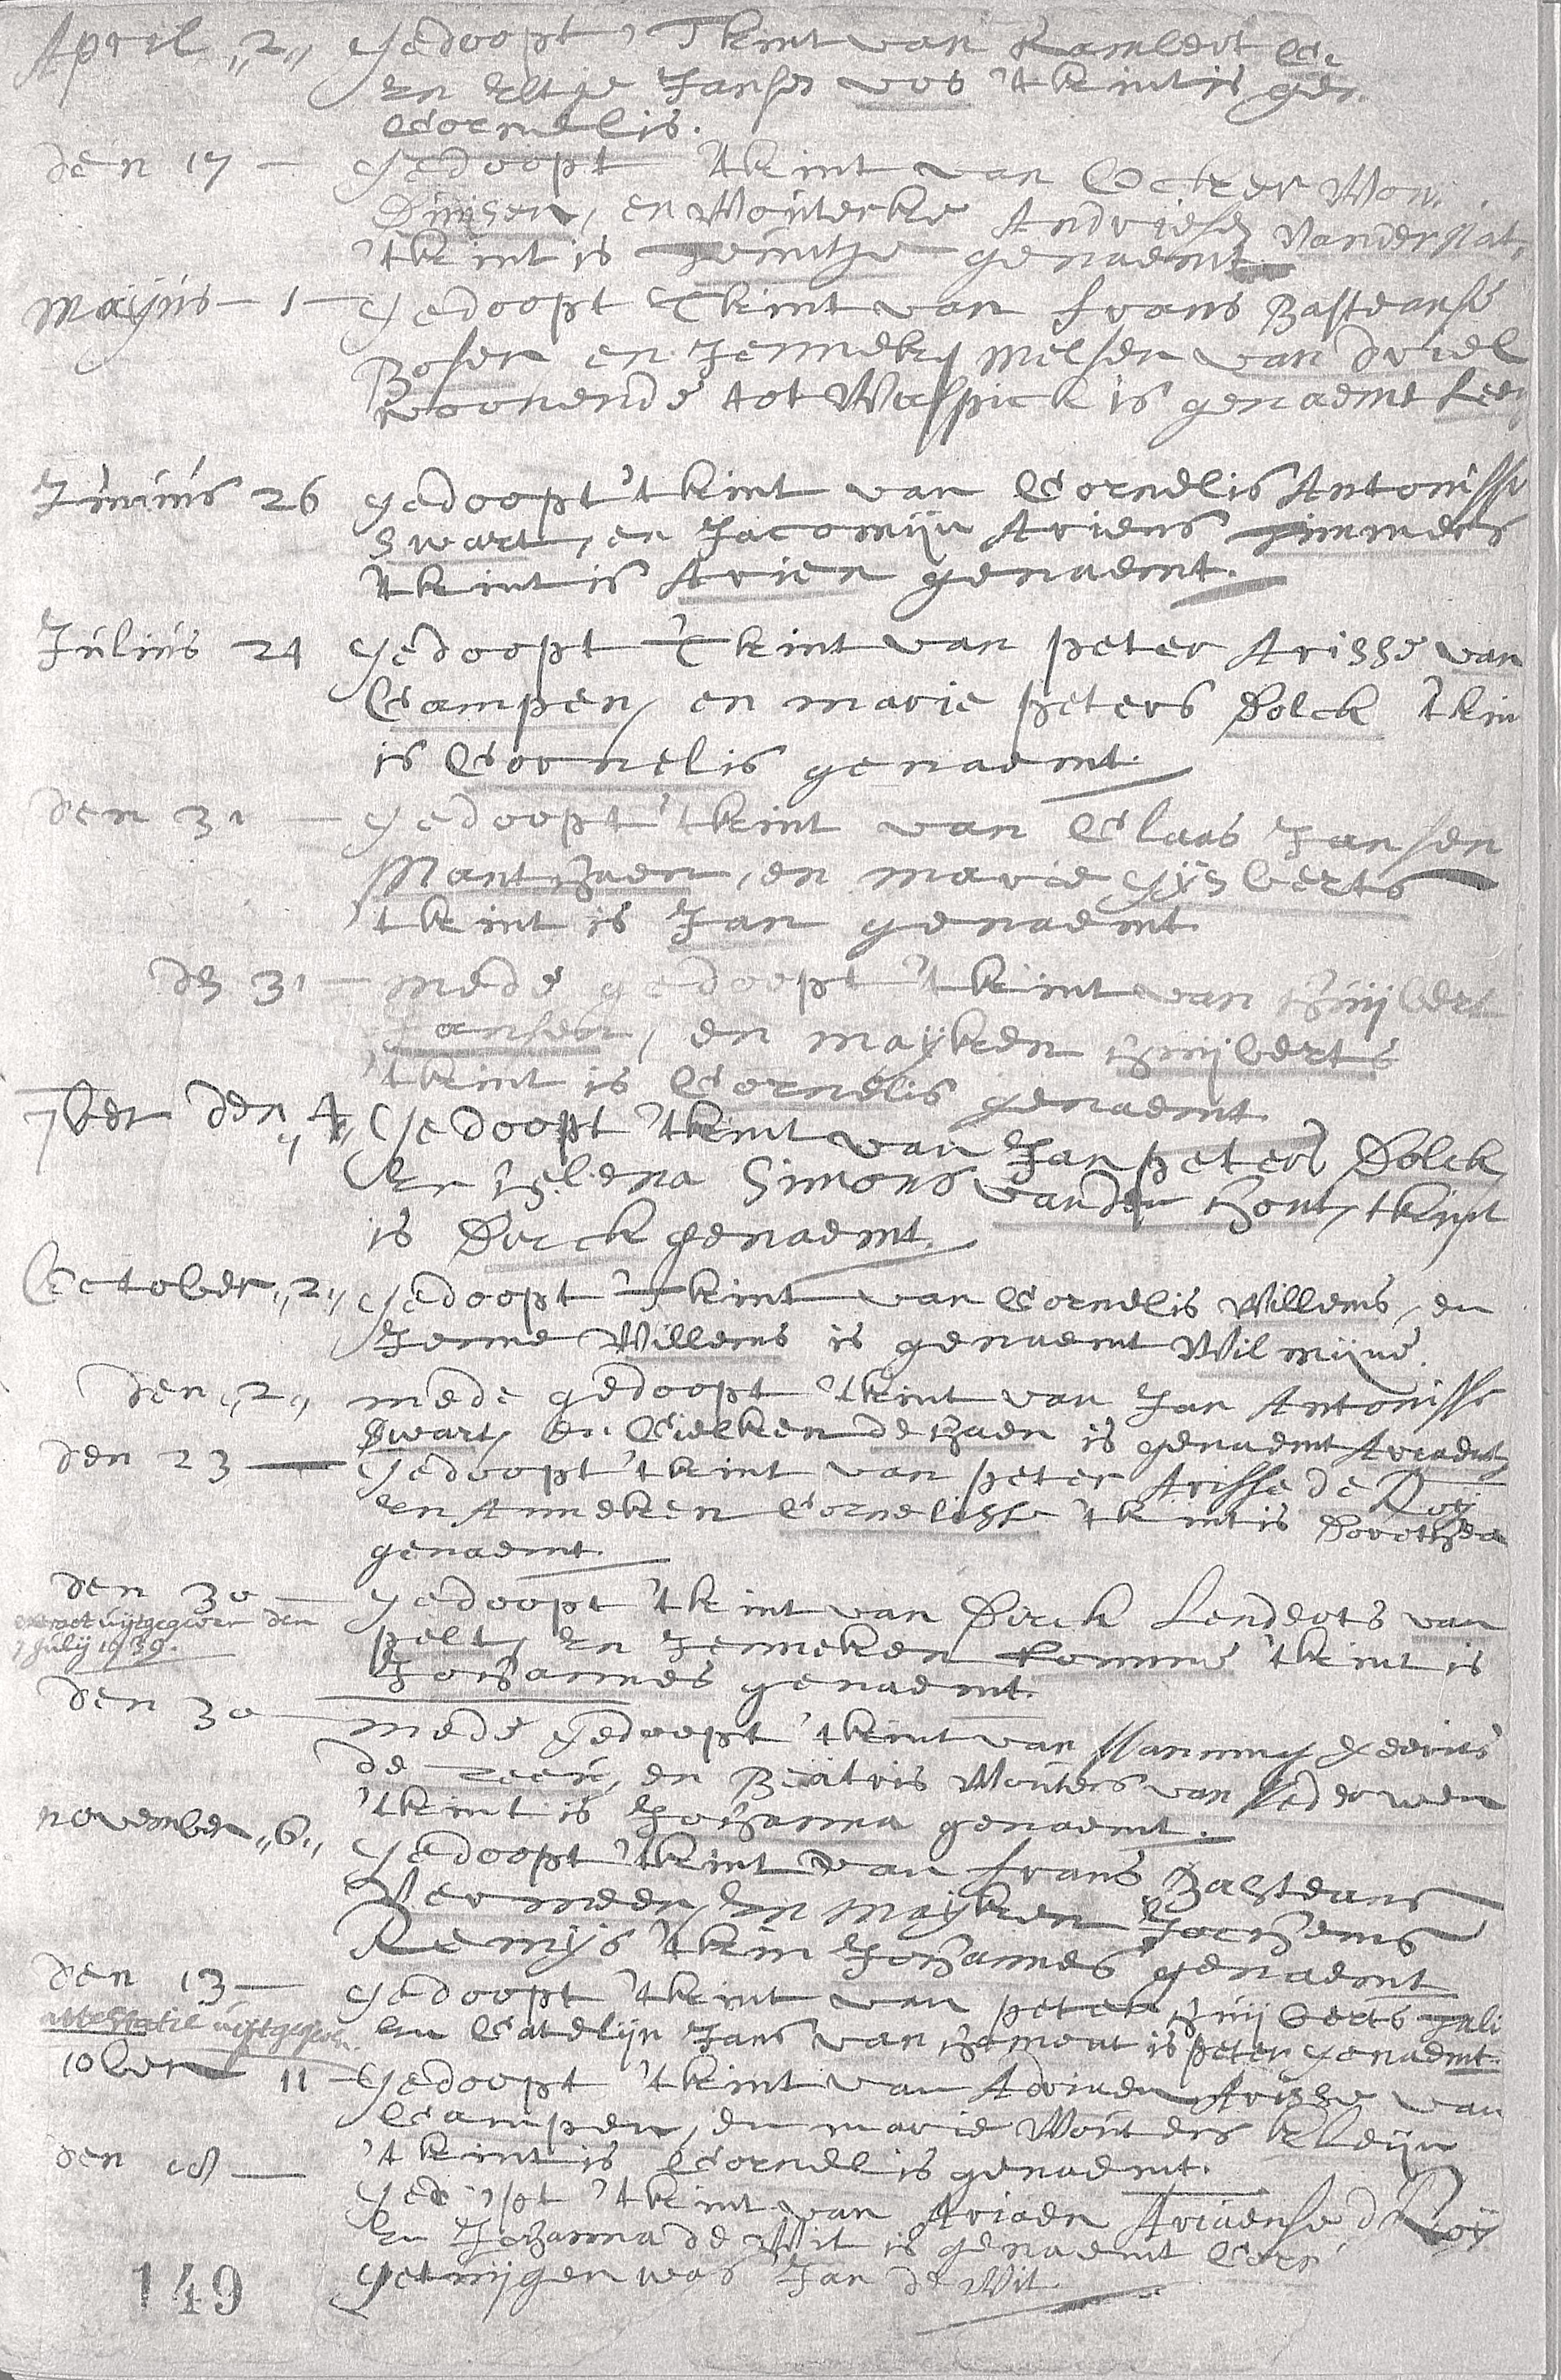 April „2„ Gedoopt, Tkint van Rambert Co.
En Eltge Jansen vos 't kint is gen.
Cornelis.
den 17 – Gedoopt 'tkint van Ocker Wou.
Dinisen, en Wouterke Andriesen vanderstat,
'tkint is genaemt
Maijus – 1 – Gedoopt Tkint van frans Basteanse
Bosen en Jenneken Melsen van driel
woonende tot Waspick is genaemt Leen
Junius 26 gedoopt 'tkint van Cornelis Antonisse
Swart, en Jacomijn Ariens Zimmers
'tkint is Arien genaemt.
Julius 24 Gedoopt T'kint van peter Arisse van
Campen, en marie peters Dolck 'tkin
is Cornelis genaemt.
den 31 – Gedoopt 'tkint van Claas Jansen
Manthaen, en marie Gÿsberts
'tkint is Jan genaemt.
den 31 – mede gedoopt 'tkint van Huijbert
Jansen, en maÿken Huijberts
'tkint is Cornelis genaemt
7ber den „4„ Gedoopt 'tkint van Jan peters Dolck
En Helena Simons vander Hout, tkint
is Dirck genaemt.
October „2„ Gedoopt 'Tkint van Cornelis Willems, en
Jenne Willems is genaemt Wilmijne.
den „2„ mede gedoopt 'tkint van Jan Antonisse
Swart, en Cielken de Haen is genaemt Ariaent
den 23 – Gedoopt 'tkint van peter Arisse de Roij
en Anneken Cornelisse 'tkint is Dorothea
genaemt.
den 30 – Gedoopt 'tkint van Dirck Lenderts van
extract uijtgegeven den
7 Julij 1739.
pelt, En Jenneken Romme 'tkint is
Johannes genaemt.
den 30 – mede gedoopt 'tkint van Manning Geerits
de Zeeu, en Beatris Wouters van Hederwen
'tkint is Johanna genaemt.
november „6„ Gedoopt 'tkint van frans Basteans
Vermeer, En Maÿken Jochems
Remijs 'tkin Johannes genaemt
den 13 – Gedoopt 'tkint van peter Huijberts
attestatie uijtgegeven.
en Catelijn Jans van Hemert is peter genaemt.
10ber 11 – Gedoopt 'tkint van Adriaen Arisse van
Campen, en marie Wouters kleijn
'tkint is Cornelis genaemt.
den 18 – Gedoopt 'tkint van Ariaen Ariaense d Roÿ
En Johanna de Wit is genaemt Corn
getuijgen was Jan de Wit.
149